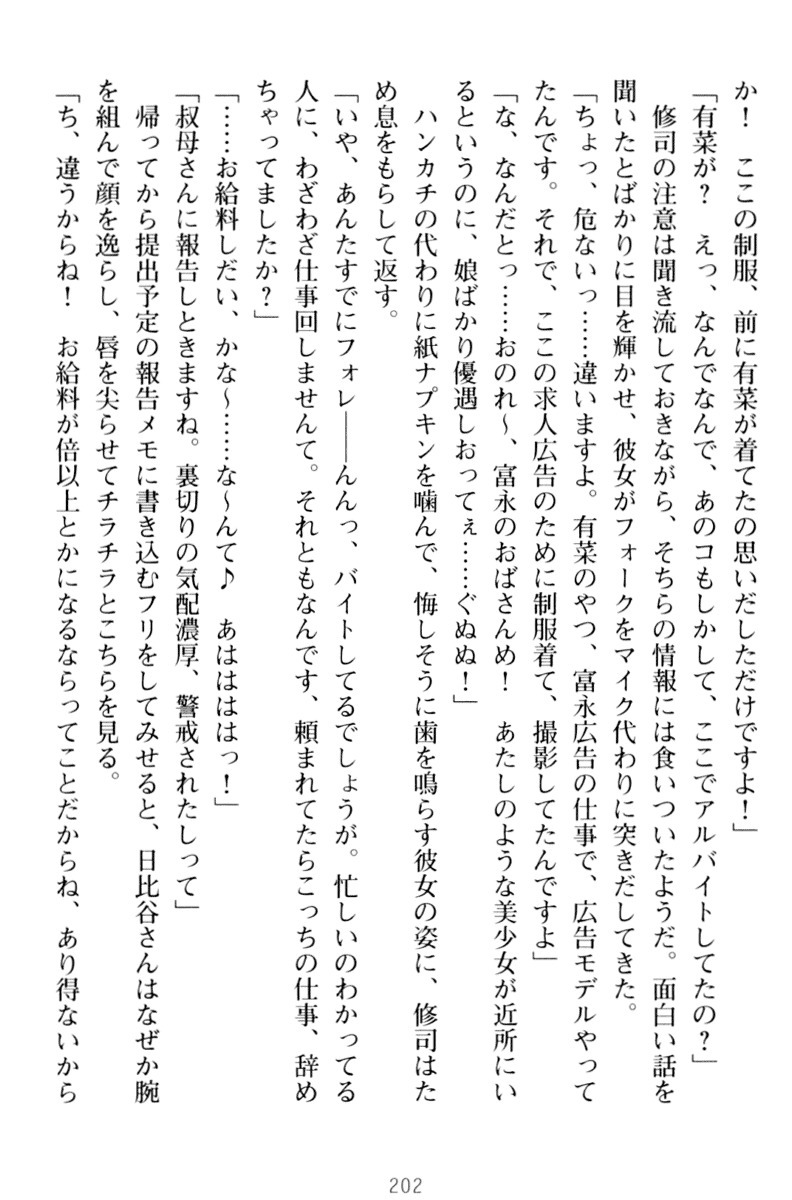 か！　ここの制服、前に有菜が着てたの思いだしただけですよ！」
「有菜が？　えっ、なんでなんで、あのコもしかして、ここでアルバイトしてたの？」
　修司の注意は聞き流しておきながら、そちらの情報には食いついたようだ。面白い話を
聞いたとばかりに目を輝かせ、彼女がフォークをマイク代わりに突きだしてきた。
「ちょっ、危ないっ……違いますよ。有菜のやつ、富永広告の仕事で、広告モデルやって
たんです。それで、ここの求人広告のために制服着て、撮影してたんですよ」
「な、なんだとっ……おのれ～、富永のおばさんめ！　あたしのような美少女が近所にい
るというのに、娘ばかり優遇しおってぇ……ぐぬぬ！」
　ハンカチの代わりに紙ナプキンを噛んで、悔しそうに歯を鳴らす彼女の姿に、修司はた
め息をもらして返す。
「いや、あんたすでにフォレ――んんっ、バイトしてるでしょうが。忙しいのわかってる
人に、わざわざ仕事回しませんて。それともなんです、頼まれてたらこっちの仕事、辞め
ちゃってましたか？」
「……お給料しだい、かな～……な～んて♪　あははははっ！」
「叔母さんに報告しときますね。裏切りの気配濃厚、警戒されたしって」
　帰ってから提出予定の報告メモに書き込むフリをしてみせると、日比谷さんはなぜか腕
を組んで顔を逸らし、唇を尖らせてチラチラとこちらを見る。
「ち、違うからね！　お給料が倍以上とかになるならってことだからね、あり得ないから
202